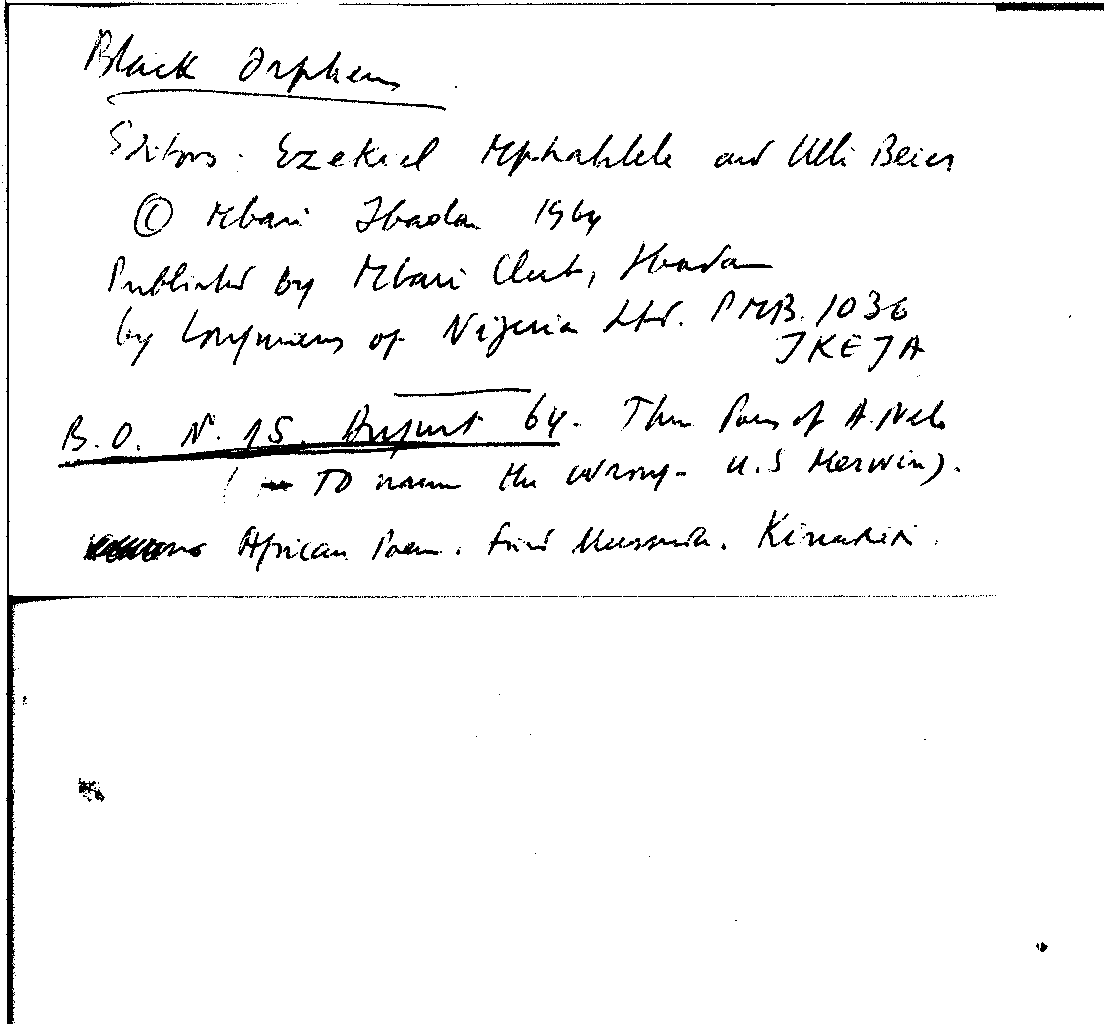 Black Orpheus
Editors. Ezekiel Mphahlele and Ulli Beier
© Mbari Ibadan 1964
Published by Mbari Club, Ibadan
by Longmans of Nigeria Ltd. PMB. 1036
IKEJA
B.O. N. 15. August 64. Three Poems of A. Neto
(→ To name the wrong - U.S Merwin).
African Poem.